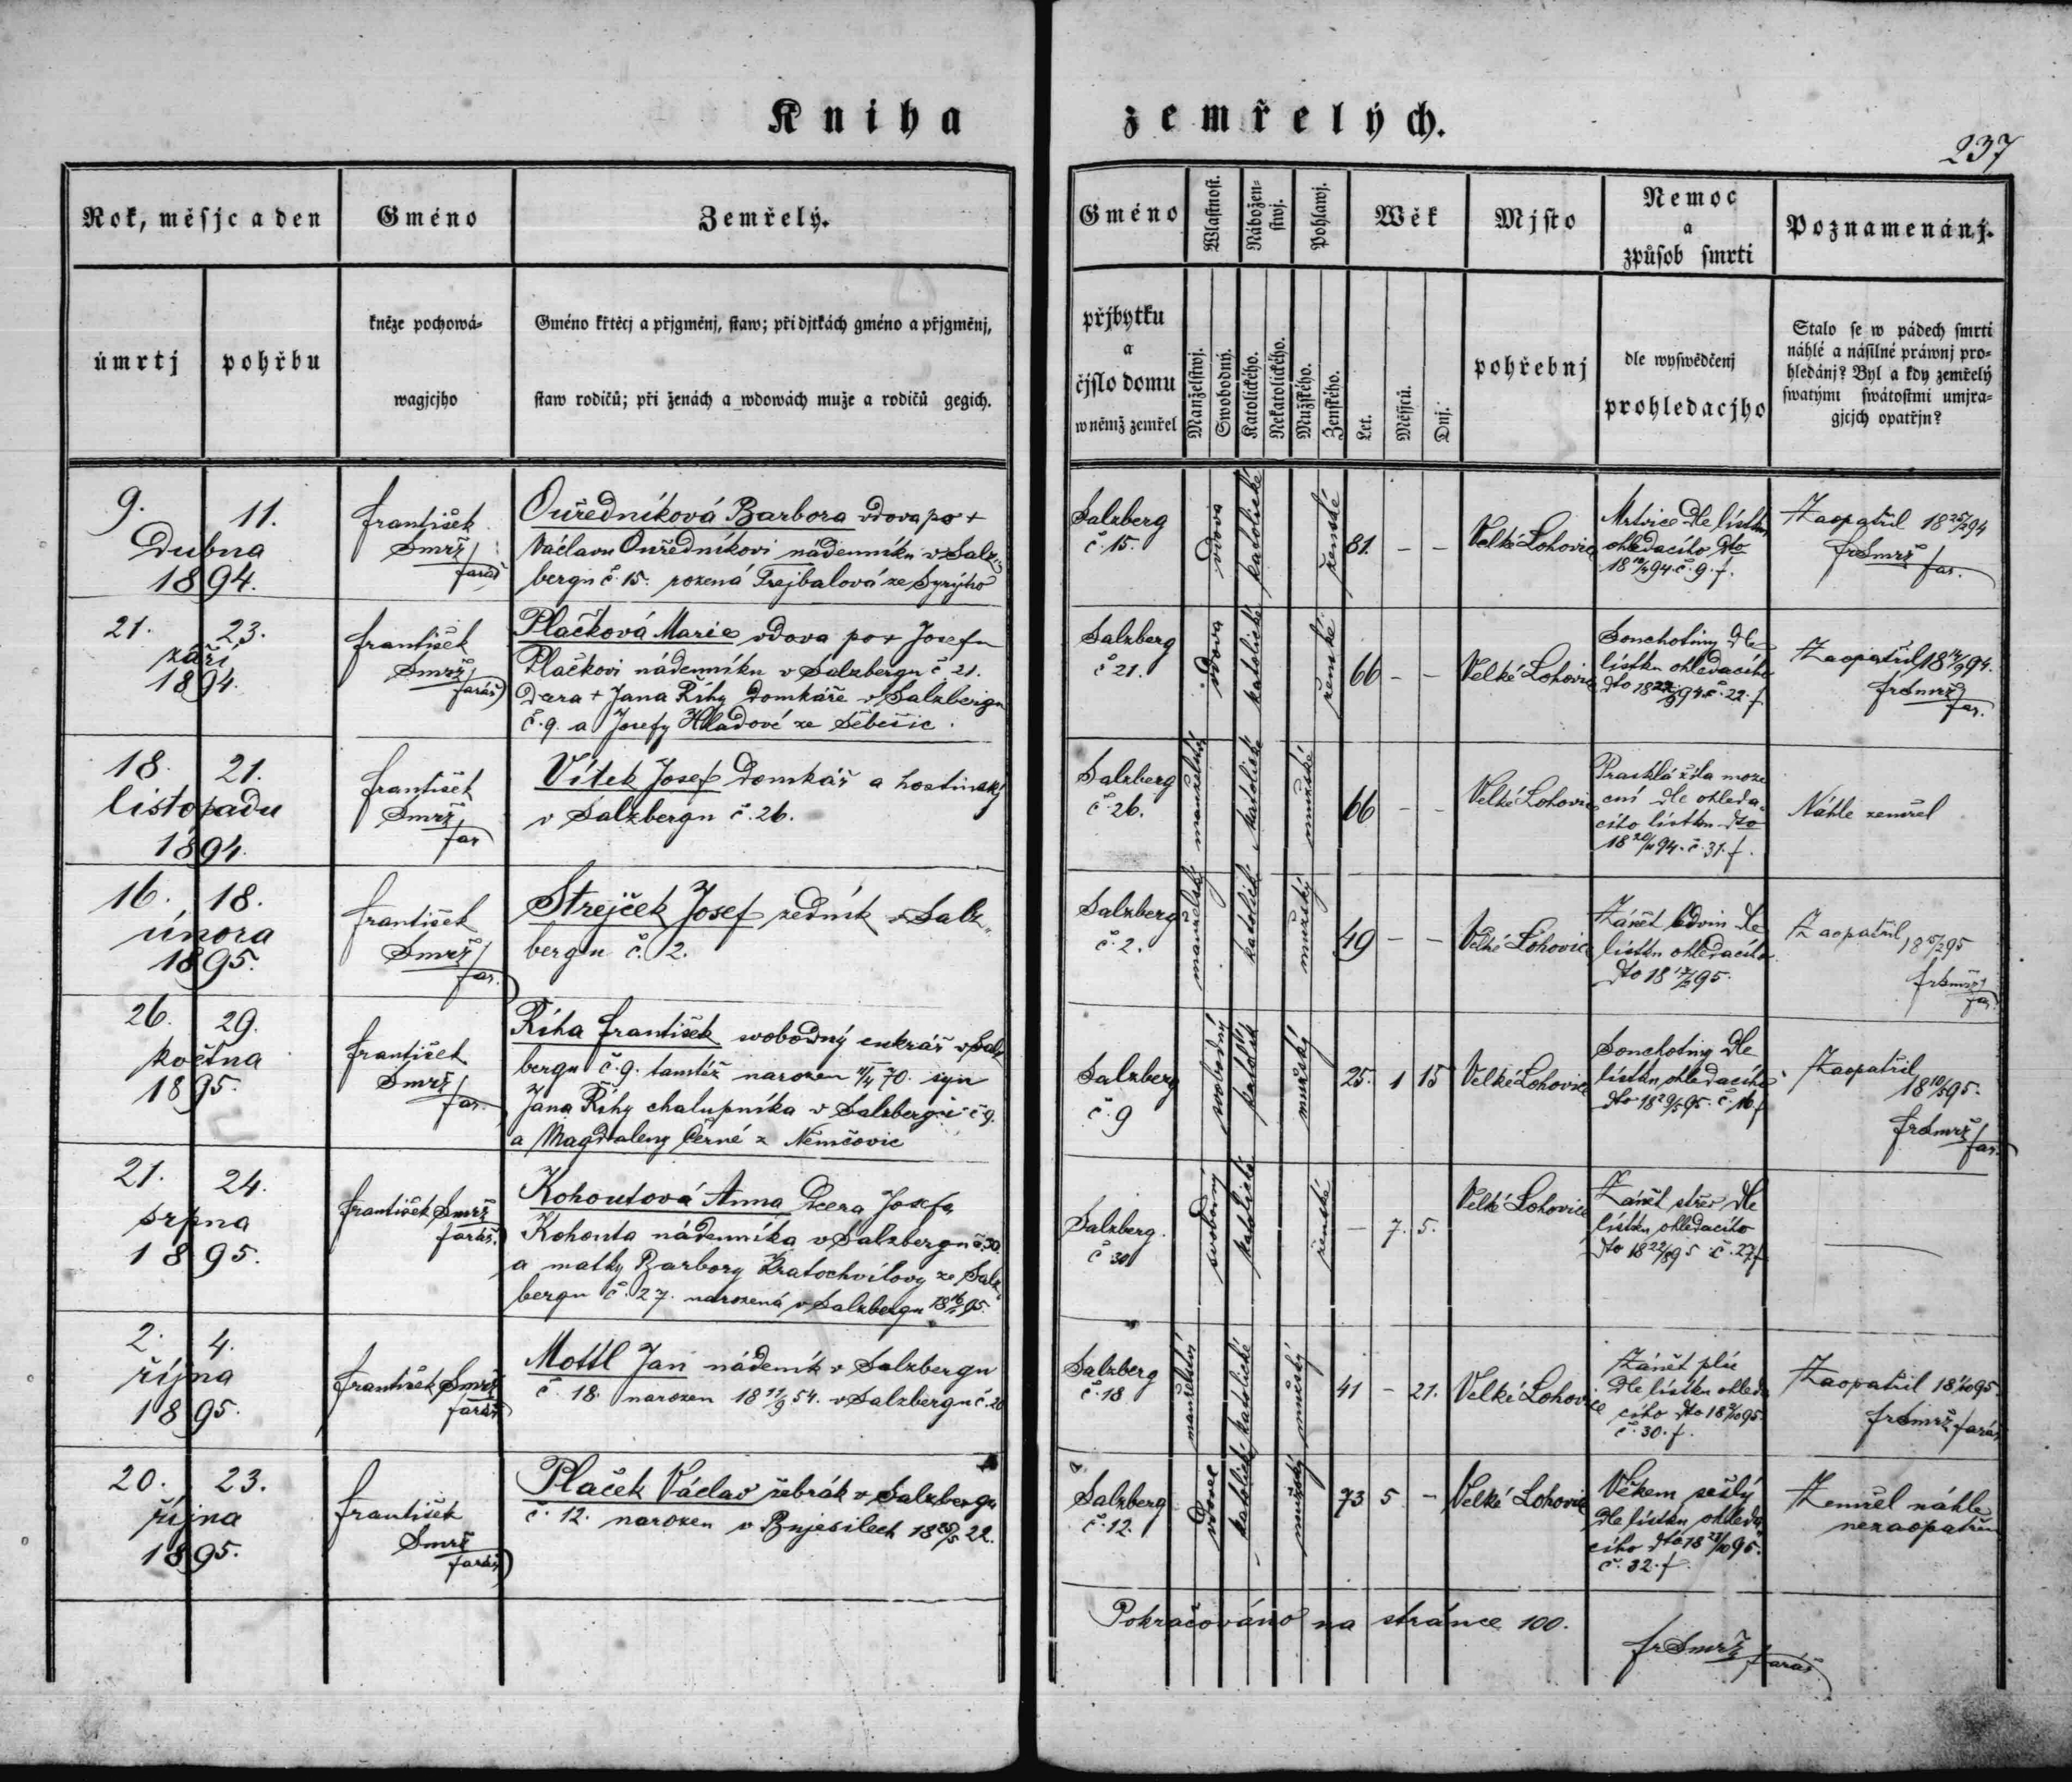 Kniha zemřelých.
237
Rok, měsjc a den
Gméno
Zemřelý.
Gméno
Wlastnost.
Nábožen-
stwj.
Pohlawj.
Wěk
Mjsto
Nemoc
a
způsob smrti
Poznamenánj.
úmrtj
pohřbu
kněze pochowá-
wagjcjho
Gméno křtěcj a přjgměnj, staw; při djtkách gméno a přjgměnj,
staw rodičů; při ženách a wdowách muže a rodičů gegich.
přjbytku
a
čjslo domu
w němž zemřel
Manželstwj.
Swobodný.
Katolického.
Nekatolického.
Mužského.
Ženského.
Let.
Měsjců.
Dnj.
pohřebnj
dle wyswědčenj
prohledacjho
Stalo se w pádech smrti
náhlé a násilné práwnj pro-
hledánj? Byl a kdy zemřelý
swatými swátostmi umjra-
gjcjch opatřjn?
9. 11.
Dubna
1894.
František
Smrž
farář
Ouředníková Barbora vdova po +
Václavu Ouředníkovi nádenníku v Salz-
bergu č. 15. rozená Trejbalová ze
Salzberg
č. 15.
vdova
katolické
ženské
81. - -
Velké Lohovice
Mrtvice dle lístku
ohledacího dto
č. 9. f.
Zaopatřil 18 25/2 94
fr Smrž far.
21. 23.
září
1894.
František
Smrž
farář
Plačková Marie vdova po + Josefu
Plačkovi nádenníku v Salzbergu č 21.
Dcera + Jana Říhy domkáře v Salzbergu
č. 9. a Josefy Hladové ze Sebečic.
Salzberg
č 21.
vdova
katolické
ženské
66 - -
Velké Lohovice
Souchotiny dle
lístku ohledacího
dto 18 22/9 94 č. 22. f
Zaopatřil 18 14/9 94.
fr Smrž
far.
18. 21.
listopadu
1894.
František
Smrž
far
Vítek Josef domkář a hostinský
v Salzbergu č. 26.
Salzberg
č. 26.
manželský
katolické
mužské
66 - -
Velké Lohovice
Prasklá žíla moze
ční dle ohleda-
cího lístku dto
18 20/11 94. č. 31. f.
Náhle zemřel
16. 18.
února
1895.
František
Smrž
far.
Strejček Josef zedník v Salz-
bergu č. 2.
Salzberg
č. 2.
manželský
katolick
mužský
49 - -
Velké Lohovice
Zánět ledvin dle
lístku ohledacího
dto 18 17/2 95.
Zaopatřil
18 15/2 95
fr Smrž
far.
26. 29.
května
1895.
František
Smrž
far.
Říha František svobodný cukrář v Salz
bergu č. 9. tamtéž narozen 11/4 70. syn
Jana Říhy chalupníka v Salzbergu č 9.
a Magdaleny Černé z Němčovic
Salzberg
č. 9
svobodný
katolick
mužský
25. 1 15
Velké Lohovice
Souchotiny dle
lístku ohledacího
dto 18 29/5 95. č. 16 f
Zaopatřil
18 10/5 95.
fr Smrž
far.
21. 24.
srpna
1895.
František Smrž
farář.
Kohoutová Anna dcera Josefa
Kohouta nádenníka v Salzbergu č 30.
a matky Barbory Kratochvílovy ze Salz-
bergu č. 27. narozená v Salzbergu 18 16/1 95.
Salzberg.
č 30
svobodný
katolické
ženské
- 7. 5.
Velké Lohovice
Zánět střev dle
lístku ohledacího
dto 18 22/8 95 č. 27 f
2. 4.
října
1895.
František Smrž
farář
Mottl Jan nádeník v Salzbergu
č. 18. narozen 18 11/9 54. v Salzbergu č. 20
Salzberg
č. 18
manželství
katolické
mužský
41 - 21.
Velké Lohovice
Zánět plic
dle lístku ohleda
cího dto 18 3/10 95.
č. 30. f.
Zaopatřil 18 1/10 95
fr Smrž farář
20. 23.
října
1895.
František
Smrž
farář
Plaček Václav žebrák v Salzbergu
č. 12. narozen v Bujesilech 18 20/5 22.
Salzberg
č. 12.
vdovec
katolick
mužský
73 5 -
Velké Lohovice
Věkem sešlý
dle lístku ohleda
cího dto 18 21/10 95.
č. 32. f.
Zemřel náhle
nezaopatřen
Pokračováno na stránce 100.
fr Smrž farář